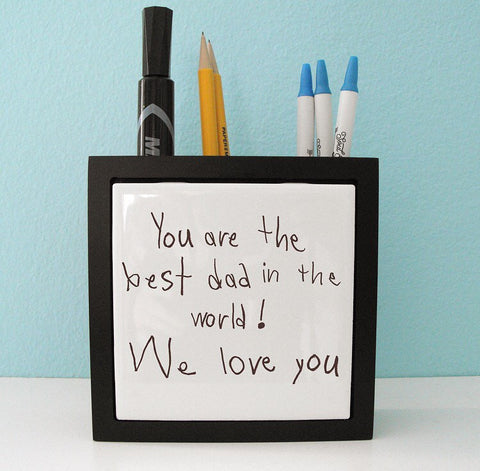 You are the
best dad in the
world!
We love you